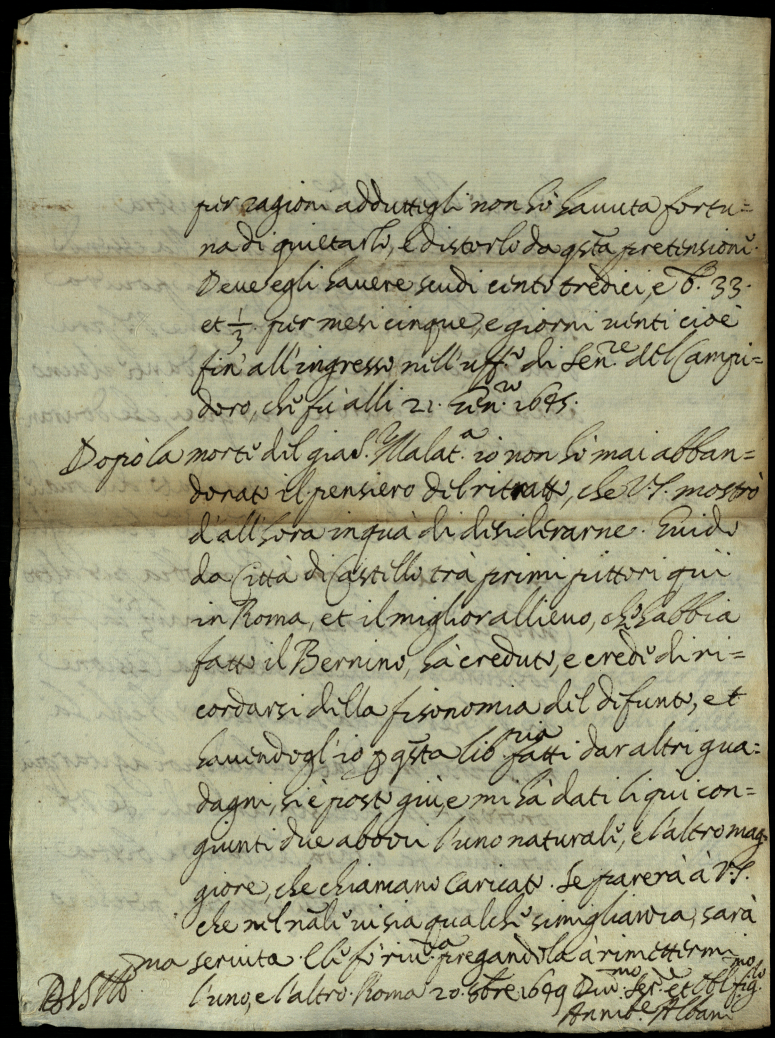 per ragioni adduttegli non hò havuta fortu=
na di quietarlo, e distorlo da qsta pretensione.
Deve egli havere scudi cento tredici, e b. 33.
et 1/3. per mesi cinque, e giorni venti cioè
fin' all'ingresso nell'uff.º di Sen.re del Campi=
doro, che fù alli 21. Gen.ro 1645.
Dopò la morte del già S.r Malat.a io non hò mai abban=
donato il pensiero del ritratto, che V.S. mostrò
d'all'hora in quà di desiderarne. Guido
da Città di Castello trà primi pittori quì
in Roma, et il miglior allievo, che habbia
fatto il Bernino, hà creduto, e crede di ri=
cordarsi della fisonomia del difunto, et
havendogl'io p qsta lib.ria fatti dar altri gua=
dagni, si è posto giù, e mi hà dati li quì con=
giunti due abbozzi l'uno naturale, e l'altro mag=
giore, che chiamano Caricato. Se parerà à V.S.
che nel n̄ale vi sia qualche simiglianza, sarà
servita
pregandola à rimettermi
l'uno, e l'altro. Roma 20. 8bre 1649 Div.mo Ser.re et Obl.mo
Annib.e Albani